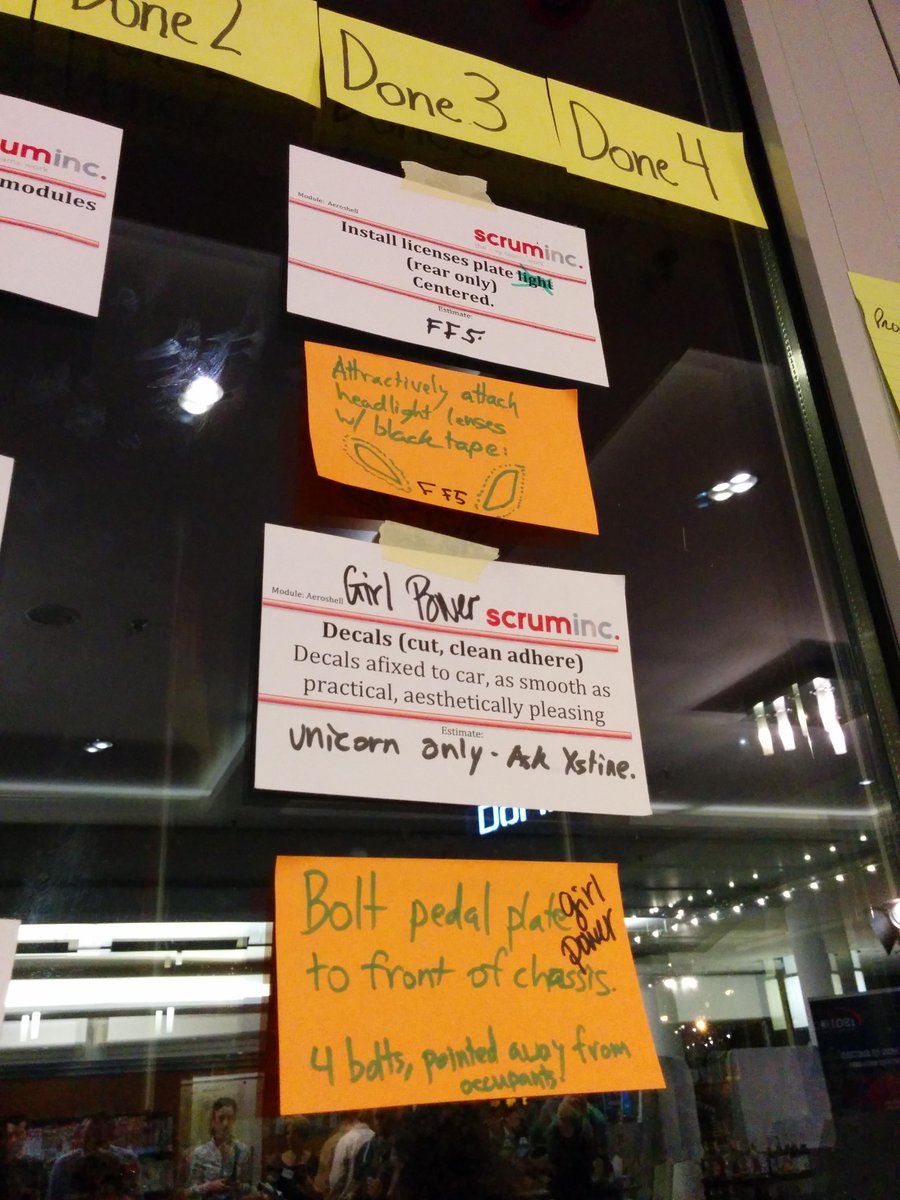 Done 2
Done 3
Done 4
uminc.
modules
Module: Aeroshell
scruminc.
Install licenses plate light
(rear only)
Centered.
Estimate:
FF5.
Attractively attach
headlight lenses
w/ black tape:
FF5
Module: Aeroshell
Girl Power
scruminc.
Decals (cut, clean adhere)
Decals afixed to car, as smooth as
practical, aesthetically pleasing
Estimate:
unicorn only - Ask Xstine.
Bolt pedal plate
girl
power
to front of chassis.
4 bolts, pointed away from
occupants.